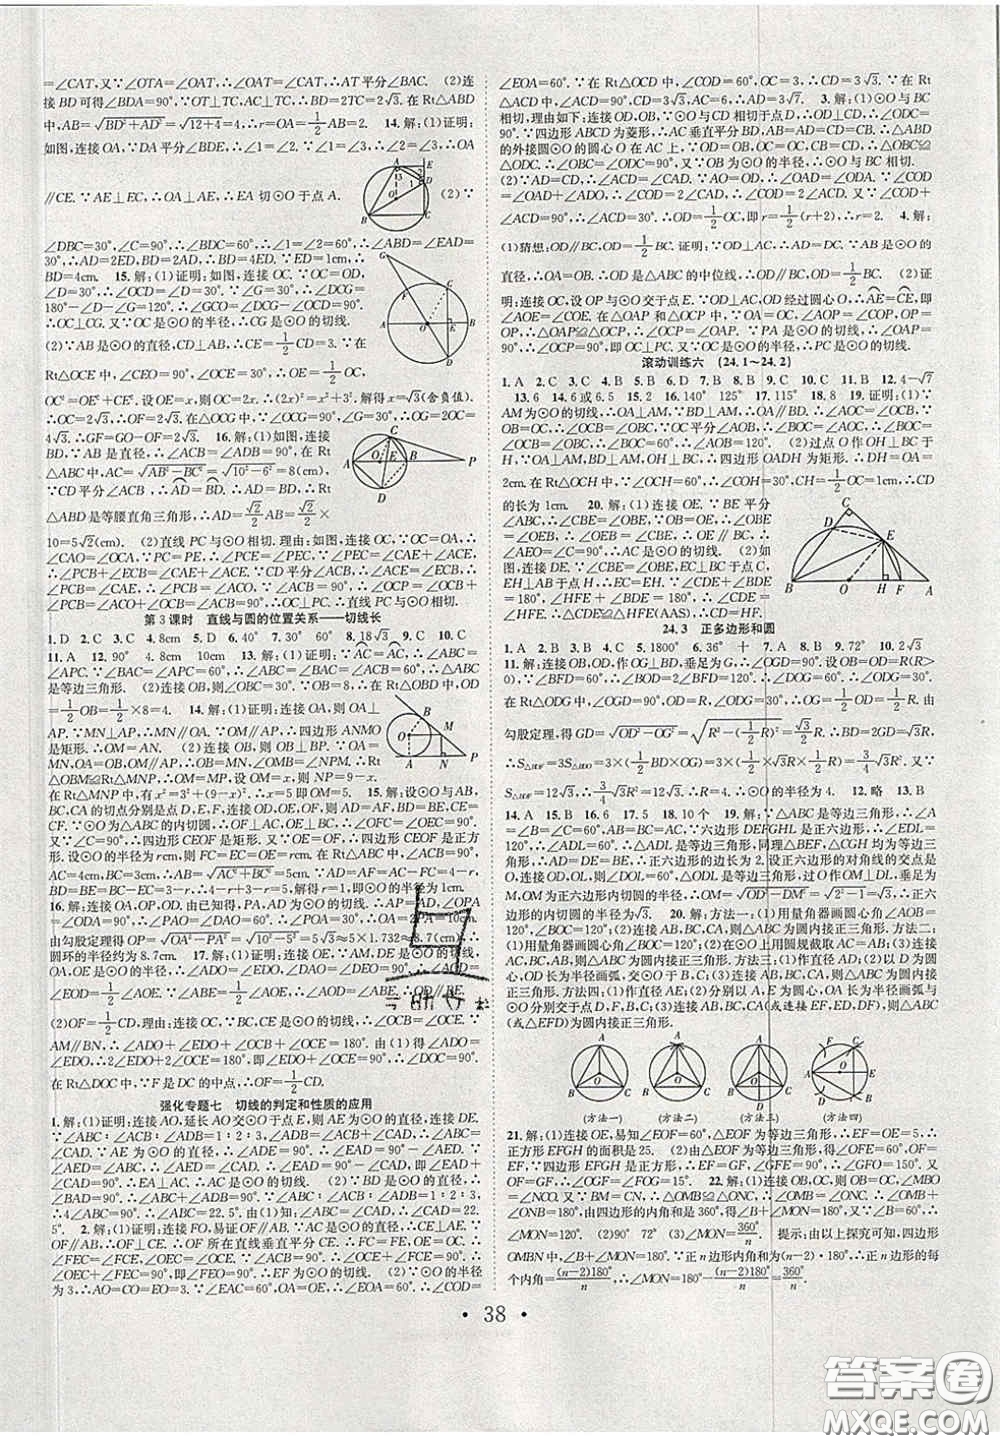 =∠CAT,又∵∠OTA=∠OAT,∴∠OAT=∠CAT,∴AT平分∠BAC. (2)连
接BD可得∠BDA=90°,∵OT⊥TC,AC⊥TC,∴BD=2TC=2√3.在Rt△ABD
中,AB=√(BD²+AD²)=√(12+4)=4,∴r=OA=1/2AB=2. 14.解:(1)证明:
如图,连接OA,∵DA平分∠BDE,∴∠1=∠2.∵OA=OD,∴∠2=∠3,∴∠1=∠3,∴OA
∥CE.∵AE⊥EC,∴OA⊥AE,∴EA切⊙O于点A. (2)∵
∠DBC=30°,∠C=90°,∴∠BDC=60°,∴∠1=∠2=60°,∴∠ABD=∠EAD=
30°,∴AD=2ED,BD=2AD,∴BD=4ED.∵ED=1cm,∴
BD=4cm. 15.解:(1)证明:如图,连接OC.∵OC=OD,
∠D=30°,∴∠OCD=∠D=30°.∵∠G=30°,∴∠DCG=
180°-∠D-∠G=120°.∴∠GCO=∠DCG-∠OCD=90°.
∴OC⊥CG.又∵OC是⊙O的半径,∴CG是⊙O的切线.
(2)∵AB是⊙O的直径,CD⊥AB,∴CE=1/2CD=3.∵在
Rt△OCE中,∠CEO=90°,∠OCE=30°,∴EO=1/2CO,
OC²=OE²+CE².设EO=x,则OC=2x.∴(2x)²=x²+3².解得x=√3(舍负值).
∴OC=2√3.∴OF=2√3.在△OCG中,∵∠OCG=90°,∠G=30°,∴OG=2OC=
4√3.∴GF=GO-OF=2√3. 16.解:(1)如图,连接
BD,∵AB是直径,∴∠ACB=∠ADB=90°,在Rt
△ABC中,AC=√(AB²-BC²)=√(10²-6²)=8(cm),
∵CD平分∠ACB,∴AD=BD.∴AD=BD.∴Rt
△ABD是等腰直角三角形,∴AD=√2/2AB=√2/2×
10=5√2(cm). (2)直线PC与⊙O相切.理由:如图,连接OC,∵OC=OA,∴
∠CAO=∠OCA,∵PC=PE,∴∠PCE=∠PEC,∵∠PEC=∠CAE+∠ACE,
∴∠PCB+∠ECB=∠CAE+∠ACE.∵CD平分∠ACB,∴∠ACE=∠ECB,∴
∠PCB=∠CAE,∴∠PCB=∠ACO,∵∠ACB=90°,∴∠OCP=∠OCB+∠PCB
=∠ACO+∠OCB=∠ACB=90°,∴OC⊥PC.∴直线PC与⊙O相切.
第3课时 直线与圆的位置关系——切线长
1.D 2.C 3.C 4.D 5.B 6.76° 7.90° 8.18√3 9.D 10.C
11.A 12.90° 4.8cm 10cm 13.解:(1)证明:∵AC=AC,∴∠ABC=
∠APC.∵∠BAC=60°,∠APC=60°,∴∠BAC=∠ABC=∠ACB=60°,∴△ABC
是等边三角形. (2)连接OB,则∠OBC=30°.∵OD⊥BC,∴在Rt△OBD中,OD
=1/2OB=1/2×8=4. 14.解:(1)证明:连接OA,则OA⊥
AP.∵MN⊥AP,∴MN∥OA.∵OM∥AP,∴四边形ANMO
是矩形.∴OM=AN. (2)连接OB,则OB⊥BP.∵OA=
MN,OA=OB,OM∥AP,∴OB=MN,∠OMB=∠NPM.∴Rt
△OBM≌Rt△MNP,∴OM=MP.设OM=x,则NP=9-x.
在Rt△MNP中,有x²=3²+(9-x)²,∴x=5.即OM=5. 15.解:设⊙O与AB,
BC,CA的切点分别是点D,E,F,连接OD,OE,OF,则AD=AF,BD=BE,CE=
CF.∵⊙O为△ABC的内切圆,∴OF⊥AC,OE⊥BC,∴∠OFC=∠OEC=90°.
又∵∠C=90°,∴四边形CEOF是矩形.又∵OE=OF,∴四边形CEOF是正方
形.设⊙O的半径为rcm,则FC=EC=OE=rcm.在Rt△ABC中,∠ACB=90°,
AC=4cm,BC=3cm,∴AB=√(AC²+BC²)=5cm.∵AD=AF=AC-FC=4-r,
BD=BE=BC-EC=3-r,∴4-r+3-r=5,解得r=1,即⊙O的半径为1cm.
16.解:连接OA,OD.由已知得,PA⊥OA,PD⊥OD,∴PA=PD=5cm,∠OPA
=∠OPD=1/2∠DPA=60°,∴∠POA=30°,∴OP=2PA=10cm.
由勾股定理得OP=√(OA²-PA²)=√(10²-5²)=5√3≈5×1.732≈8.7(cm).∴
圆环的半径约为8.7cm. 17.解:(1)证明:连接OE,∵AM,DE是⊙O的切线,
OA,OE是⊙O的半径,∴∠ADO=∠EDO,∠DAO=∠DEO=90°,∴∠AOD=
∠EOD=1/2∠AOE.∵∠ABE=1/2∠AOE,∴∠AOD=∠ABE,∴OD∥BE.
(2)OF=1/2CD,理由:连接OC,∵BC,CE是⊙O的切线,∴∠OCB=∠OCE.∵
AM∥BN,∴∠ADO+∠EDO+∠OCB+∠OCE=180°.由(1)得∠ADO=
∠EDO,∴2∠EDO+2∠OCE=180°,即∠EDO+∠OCE=90°,∴∠DOC=90°.
在Rt△DOC中,∵F是DC的中点,∴OF=1/2CD.
强化专题七 切线的判定和性质的应用
1.解:(1)证明:连接AO,延长AO交⊙O于点E,则AE为⊙O的直径,连接DE.
∵∠ABC:∠ACB:∠ADB=1:2:3,∠ADB=∠ACB+∠CAD,∴∠ABC=
∠CAD.∵AE为⊙O的直径,∴∠ADE=90°,∴∠EAD=90°-∠AED.∵
∠AED=∠ABD,∴∠AED=∠ABC=∠CAD,∴∠EAD=90°-∠CAD,即
∠EAD+∠CAD=90°,∴EA⊥AC,∴AC是⊙O的切线. (2)∵BD是⊙O的直
径,∴∠BAD=90°,∴∠ABC+∠ADB=90°.∵∠ABC:∠ACB:∠ADB=1:2:3,
∴4∠ABC=90°,∴∠ABC=22.5°.由(1)知:∠ABC=∠CAD,∴∠CAD=22.
5°. 2.解:(1)证明:连接FO,易证OF∥AB.∵AC是⊙O的直径,∴CE⊥AE,∵
OF∥AB,∴OF⊥CE.∴OF所在直线垂直平分CE.∴FC=FE,OE=OC.∴
∠FEC=∠FCE,∠OEC=∠OCE.∵∠ACB=90°.即∠OCE+∠FCE=90°.∴
∠OEC+∠FEC=90°.即∠FEO=90°.∴FE为⊙O的切线. (2)∵⊙O的半径
为3,∴AO=CO=EO=3.∵∠EAC=60°,OA=OE.∴∠EOA=60°.∴∠COD=
∠EOA=60°.∵在Rt△OCD中,∠COD=60°,OC=3,∴CD=3√3.∵在Rt
△ACD中,∠ACD=90°,CD=3√3,AC=6,∴AD=3√7. 3.解:(1)⊙O与BC
相切,理由如下:连接OD,OB,∵⊙O与CD相切于点D,∴OD⊥CD,∴∠ODC=
90°.∵四边形ABCD为菱形,∴AC垂直平分BD,AD=CD=CB.∴△ABD
的外接圆⊙O的圆心O在AC上,∵OD=OB,OC=OC,CB=CD,∴△OBC≌
△ODC.∴∠OBC=∠ODC=90°,又∵OB为⊙O的半径,∴⊙O与BC相切.
(2)∵AD=CD,∴∠ACD=∠CAD.∵AO=OD,∴∠OAD=∠ODA.∵∠COD=
∠OAD+∠AOD,∴∠COD=2∠CAD,∴∠COD=2∠ACD.又∵∠COD+
∠ACD=90°,∴∠ACD=30°.∴OD=1/2OC,即r=1/2(r+2),∴r=2. 4.解:
(1)猜想:OD∥BC,OD=1/2BC.证明:∵OD⊥AC,∴AD=DC.∵AB是⊙O的
直径,∴OA=OB.∴OD是△ABC的中位线,∴OD∥BC,OD=1/2BC. (2)证
明:连接OC,设OP与⊙O交于点E.∵OD⊥AC,OD经过圆心O,∴AE=CE,即
∠AOE=∠COE.在△OAP和△OCP中,∵OA=OC,∠AOP=∠COP,OP=
OP,∴△OAP≌△OCP,∴∠OCP=∠OAP.∵PA是⊙O的切线,∴∠OAP=
90°.∴∠OCP=90°,即OC⊥PC.又∵OC是⊙O的半径,∴PC是⊙O的切线.
滚动训练六 (24.1~24.2)
1.A 2.C 3.C 4.A 5.C 6.D 7.C 8.A 9.C 10.C 11.B 12.4-√7
13.6 14.6或6.5 15.2 16.140° 125° 17.115° 18.8 19.证明:(1)∵
AM为⊙O的切线,∴OA⊥AM,∵BD⊥AM,∴∠OAM=∠BDM=90°,∴OA∥
BD,∴∠AOC=∠OCB,∵OB=OC,∴∠OBC=∠OCB.∵OC平分∠AOB,∴
∠AOC=∠BOC,∴∠BOC=∠OCB=∠OBC=60°,∴∠AOB=120°,∴∠ANB=
1/2∠AOB=60°. (2)过点O作OH⊥BC于
H,∵OA∥DH,OH∥AD,∴四边形OADH为矩形.∴DH=OA=
2cm.在Rt△OCH中,∵∠OCH=60°,∴CH=1/2OC=1cm,∴CD
的长为1cm. 20.解:(1)连接OE.∵BE平分
∠ABC,∴∠CBE=∠OBE,∵OB=OE,∴∠OBE
=∠OEB,∴∠OEB=∠CBE,∴OE∥BC.∴
∠AEO=∠C=90°.∴AC是⊙O的切线. (2)如
图,连接DE.∵∠CBE=∠OBE,EC⊥BC于点C,
EH⊥AB于H,∴EC=EH.∵∠CDE+∠BDE=
180°,∠HFE+∠BDE=180°,∴∠CDE=
∠HFE,∵∠C=∠EHF=90°,∴△CDE≌△HFE,∴CD=HF.
24.3 正多边形和圆
1.A 2.C 3.B 4.D 5.1800° 6.36° 十 7.A 8.B 9.72° 10.2√3
11.解:连接OB,OD,作OG⊥BD,垂足为G,∴∠OGD=90°.设OB=OD=R(R>
0),∵∠BFD=60°,∴∠BOD=2∠BFD=120°.∵OB=OD,∴∠OBD=∠ODB=
30°,在Rt△ODG中,∠OGD=90°,OD=R,∠ODG=30°,∴OG=1/2R.由
勾股定理,得GD=√(OD²-OG²)=√(R²-(1/2R)²)=√3/2R.∴BD=2GD=√3R.
∴S△BDF=3S△BOD=3×(1/2BD·OG)=3×(1/2×√3R×1/2R)=3√3/4R².又∵
S△BDF=12√3,∴3√3/4R²=12√3,∴R=4,∴⊙O的半径为4. 12.略 13.B
14.A 15.B 16.6 17.5 18.10个 19.解:∵△ABC为等边三角形,∴∠A
=∠B=∠C=60°,AB=BC=AC=6.∵六边形DEFGHL是正六边形,∴∠EDL=
120°,∴∠ADL=60°,∴△ADL为等边三角形,同理△BEF,△CGH均为等边三角
形,∴AD=DE=BE,∴DE=2.∴正六边形的边长为2.设正六边形的对角线的交点是
O,连接OD,OL,则△ODL是等边三角形,∴OD=DL=2.作OM⊥DL,垂足为
M,OM为正六边形内切圆的半径,DM=1/2DL=1,OM=√(OD²-DM²)=√(2²-1)=√3,∴正六
边形的内切圆的半径为√3. 20.解:方法一:(1)用量角器画圆心角∠AOB=
120°,∠BOC=120°;(2)连接AB,BC,CA,则△ABC为圆内接正三角形.方法二:
(1)用量角器画圆心角∠BOC=120°;(2)在⊙O上用圆规截取AC=AB;(3)连接
AC,BC,AB,则△ABC为圆内接正三角形.方法三:(1)作直径AD;(2)以D为圆
心,以OA长为半径画弧,交⊙O于点B,C;(3)连接AB,BC,CA,则△ABC为圆内接正三角
形.方法四:(1)作直径AE;(2)分别以A,E为圆心,OA长为半径画弧与
⊙O分别交于点D,F,B,C;(3)连接AB,BC,CA(或连接EF,ED,DF),则△ABC
(或△EFD)为圆内接正三角形.
(方法一) (方法二) (方法三) (方法四)
21.解:(1)连接OE,易知∠EOF=60°,△EOF为等边三角形,∴EF=OE=5,∴
正方形EFGH的面积是25. (2)由△EOF为等边三角形,得∠OFE=60°,OF=
EF,∵四边形EFGH是正方形,∴∠EFG=90°,EF=GF,∴∠GFO=150°.又∵
OF=FG,∴∠OGF=∠FOG=15°. 22.解:(1)连接OB,OC,则OB=OC,∠MBO
=∠NCO.又∵BM=CN,∴△OMB≌△ONC,∴∠OMB=∠ONC,∴∠OMB+
∠ONB=180°.由四边形的内角和是360°,得∠B+∠MON=180°,∴∠MON=
120°. (2)90° 72° (3)∠MON=360°/n. 提示:由以上探究可知,四边形
OMBN中,∠B+∠MON=180°.∵正n边形内角和为(n-2)·180°,∴正n边形的每
个内角=(n-2)180°/n.∴∠MON=180°-(n-2)180°/n=360°/n.
38
答案圈
MXQE.COM